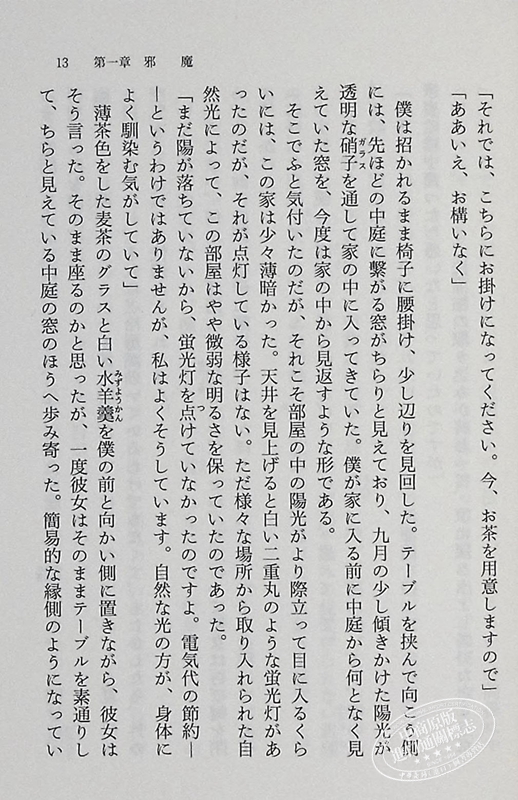 13　第一章　邪　魔
「それでは、こちらにお掛けになってください。今、お茶を用意しますので」
「ああいえ、お構いなく」
　僕は招かれるまま椅子に腰掛け、少し辺りを見回した。テーブルを挟んで向こう側
には、先ほどの中庭に繋がる窓がちらりと見えており、九月の少し傾きかけた陽光が
透明な硝子を通して家の中に入ってきていた。僕が家に入る前に中庭から何となく見
ガラス
えていた窓を、今度は家の中から見返すような形である。
　そこでふと気付いたのだが、それこそ部屋の中の陽光がより際立って目に入るくら
いには、この家は少々薄暗かった。天井を見上げると白い二重丸のような蛍光灯があ
ったのだが、それが点灯している様子はない。ただ様々な場所から取り入れられた自
然光によって、この部屋はやや微弱な明るさを保っていたのであった。
「まだ陽が落ちていないから、蛍光灯を点けていなかったのですよ。電気代の節約―
つ
―というわけではありませんが、私はよくそうしています。自然な光の方が、身体に
よく馴染む気がしていて」
　薄茶色をした麦茶のグラスと白い水羊羹を僕の前と向かい側に置きながら、彼女は
みずようかん
そう言った。そのまま座るのかと思ったが、一度彼女はそのままテーブルを素通りし
て、ちらと見えている中庭の窓のほうへ歩み寄った。簡易的な縁側のようになってい